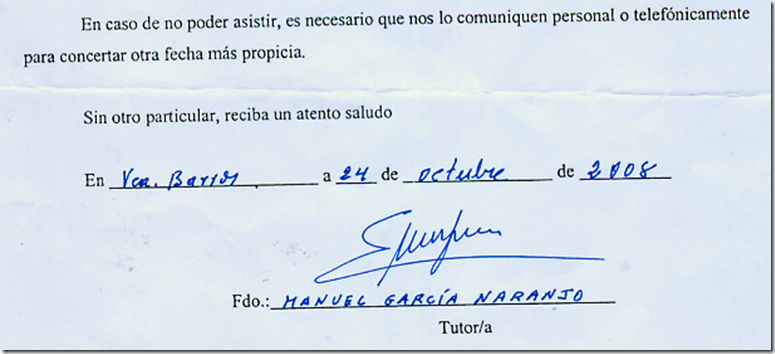 En caso de no poder asistir, es necesario que nos lo comuniquen personal o telefónicamente
para concertar otra fecha más propicia.
Sin otro particular, reciba un atento saludo
En Vva. Barros a 24 de octubre de 2008
Fdo.: MANUEL GARCÍA NARANJO
Tutor/a